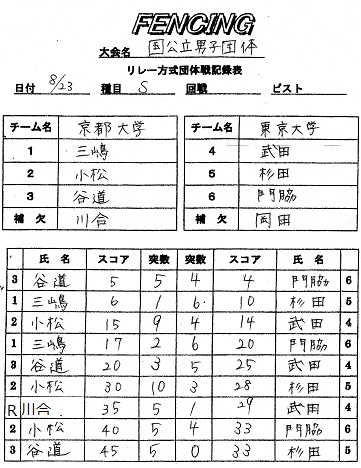 FENCING
大会名 国公立男子団体
リレー方式団体戦記録表
日付 8/23 種目 S 回戦 ピスト
チーム名 京都大学 チーム名 東京大学
1 三嶋 4 武田
2 小松 5 杉田
3 谷道 6 門脇
補欠 川合 補欠 岡田
氏名 スコア 突数 突数 スコア 氏名
3 谷道 5 5 4 4 門脇 6
1 三嶋 6 1 6 10 杉田 5
2 小松 15 9 4 14 武田 4
1 三嶋 17 2 6 20 門脇 6
3 谷道 20 3 5 25 武田 4
2 小松 30 10 3 28 杉田 5
R 川合 35 5 1 29 武田 4
2 小松 40 5 4 33 門脇 6
3 谷道 45 5 0 33 杉田 5